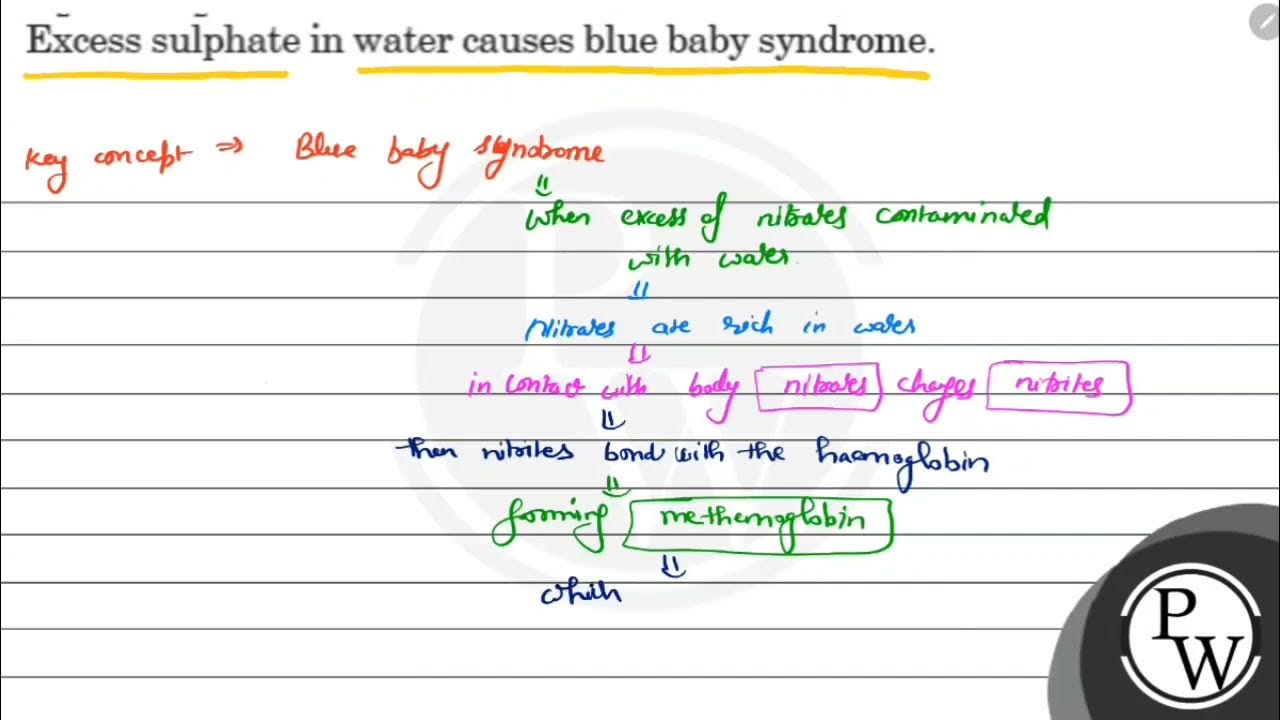 Excess sulphate in water causes blue baby syndrome.
Key concept ⇒ Blue baby syndrome
When excess of nitrates contaminated
with water.
Nitrates are rich in water
in contact with body nitrates changes nitrites
then nitrites bond with the haemoglobin
forming methemoglobin
which
PW